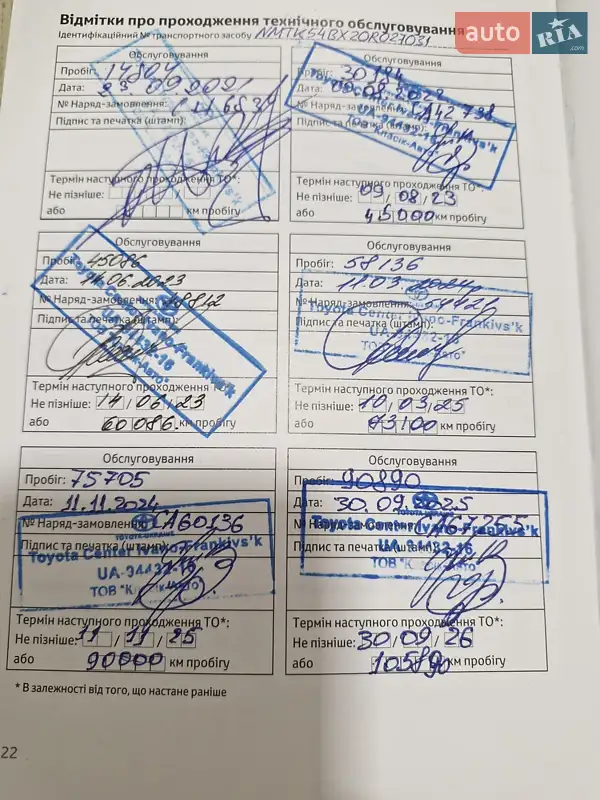 Відмітки про проходження технічного обслуговування
auto RIA.com
Ідентифікаційний № транспортного засобу NMTKS4BX20R027031
Обслуговування
Пробіг: 14804
Дата: 23.09.2021
№ Наряд-замовлення:
Підпис та печатка (штамп):
Термін наступного проходження ТО*:
Не пізніше: / /
або км пробігу
Обслуговування
Пробіг: 30184
Дата: 09.08.2022
№ Наряд-замовлення: CA42738
Підпис та печатка (штамп):
UA-94432-16
ТОВ "Класік-Авто"
Термін наступного проходження ТО*:
Не пізніше: 09 / 08 / 23
або 45000 км пробігу
Обслуговування
Пробіг: 45086
Дата: 14.06.2023
№ Наряд-замовлення:
Підпис та печатка (штамп):
Термін наступного проходження ТО*:
Не пізніше: 14 / 06 / 23
або 60086 км пробігу
Обслуговування
Пробіг: 58136
Дата: 11.03.2024
№ Наряд-замовлення:
Підпис та печатка (штамп):
Toyota Center Ivano-Frankivs'k
UA-94432-16
ТОВ "Класік-Авто"
Термін наступного проходження ТО*:
Не пізніше: 10 / 03 / 25
або 73100 км пробігу
Обслуговування
Пробіг: 75705
Дата: 11.11.2024
№ Наряд-замовлення: CA60136
TOYOTA-UKRAINE
Підпис та печатка (штамп):
Toyota Center Ivano-Frankivs'k
UA-94432-16
ТОВ "Класік-Авто"
Термін наступного проходження ТО*:
Не пізніше: 11 / 11 / 25
або 90000 км пробігу
Обслуговування
Пробіг: 90890
Дата: 30.09.2025
№ Наряд-замовлення:
Toyota Center Ivano-Frankivs'k
Підпис та печатка (штамп):
UA-94432-16
ТОВ "Класік-Авто"
Термін наступного проходження ТО*:
Не пізніше: 30 / 09 / 26
або 105890 км пробігу
* В залежності від того, що настане раніше
22